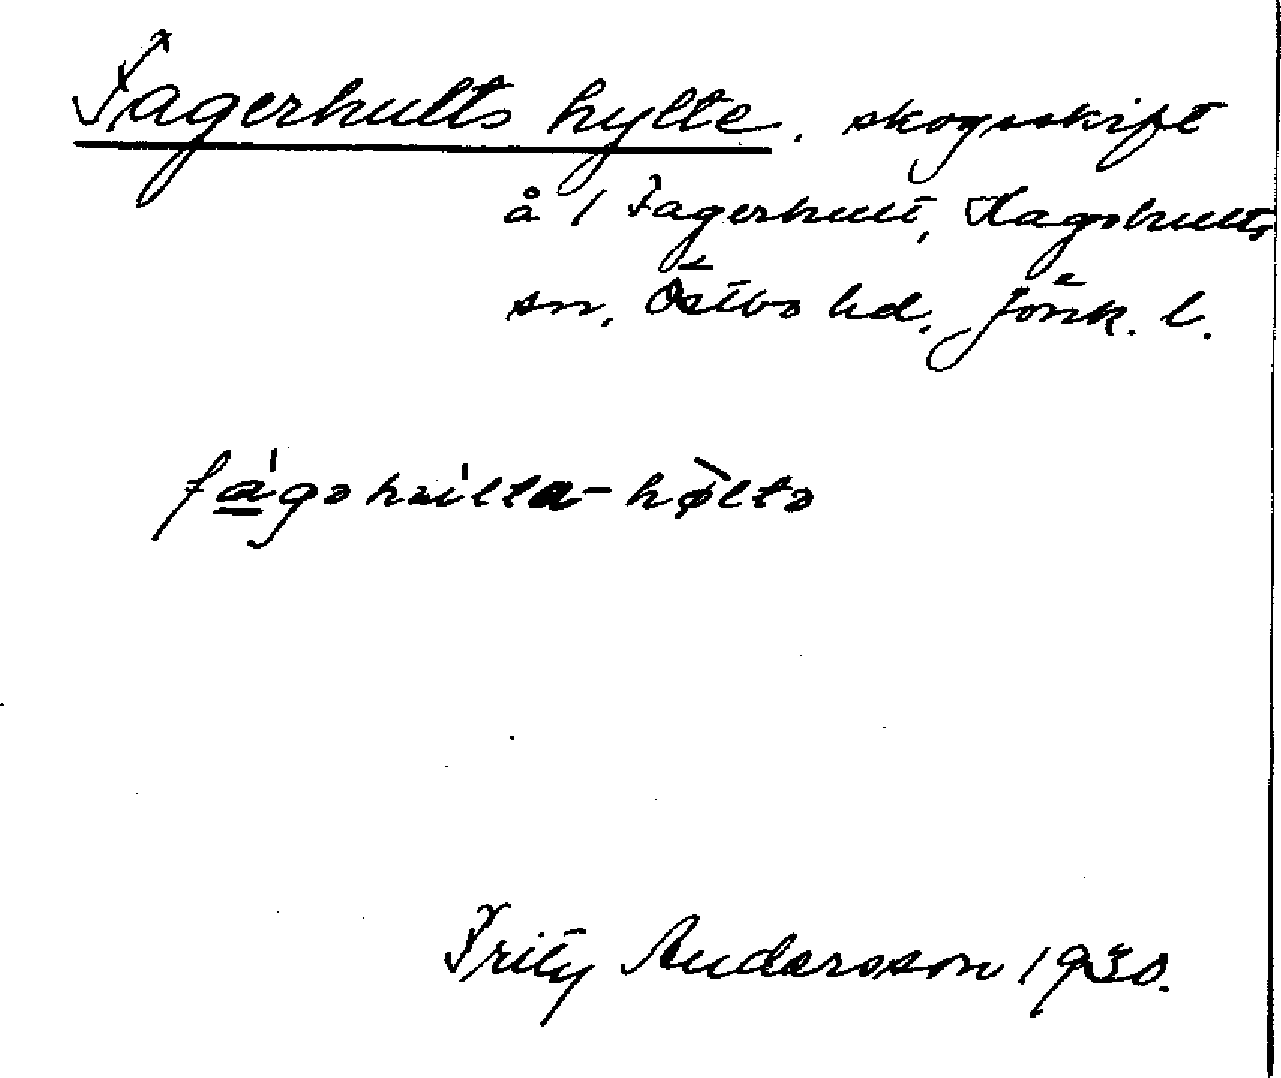 Fagerhults hylte. skogsskift
å 1 Fagerhult, Hagshults
sn, Östbo hd, Jönk. l.
Fritz Andersson 1930.